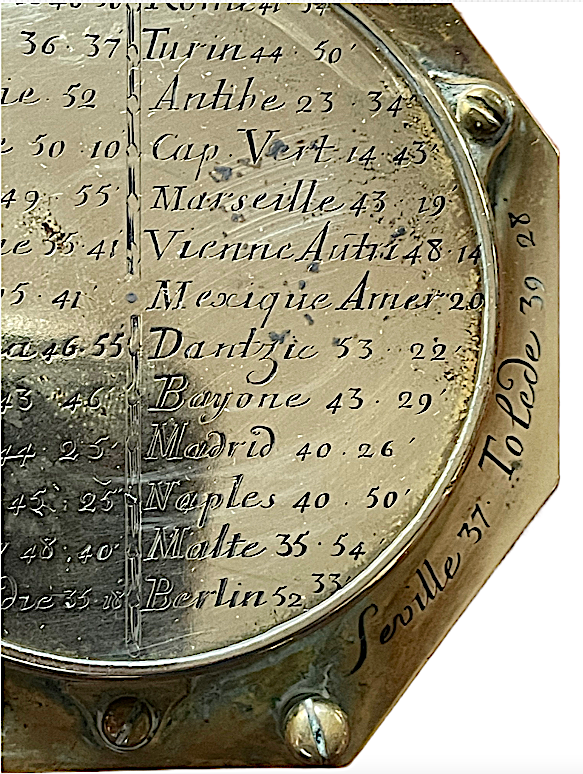 36 · 37
ie 52
e 50 10
49 · 55'
41
5 · 41'
a 46 55
43 46'
44 25'
45 25"
48 40'
die 35 18
Rome 41 54
Turin 44 · 50'
Antibe 23 · 34'
Cap. Vert. 14 43'
Marseille 43 · 19'
Vienne Autri 48 · 14
Mexique Amer 20
Dantzic 53 · 22'
Bayone 43 · 29'
Madrid 40 · 26'
Naples 40 · 50'
Malte 35 · 54
Berlin 52 33'
Seville 37 · Tolede 39 28